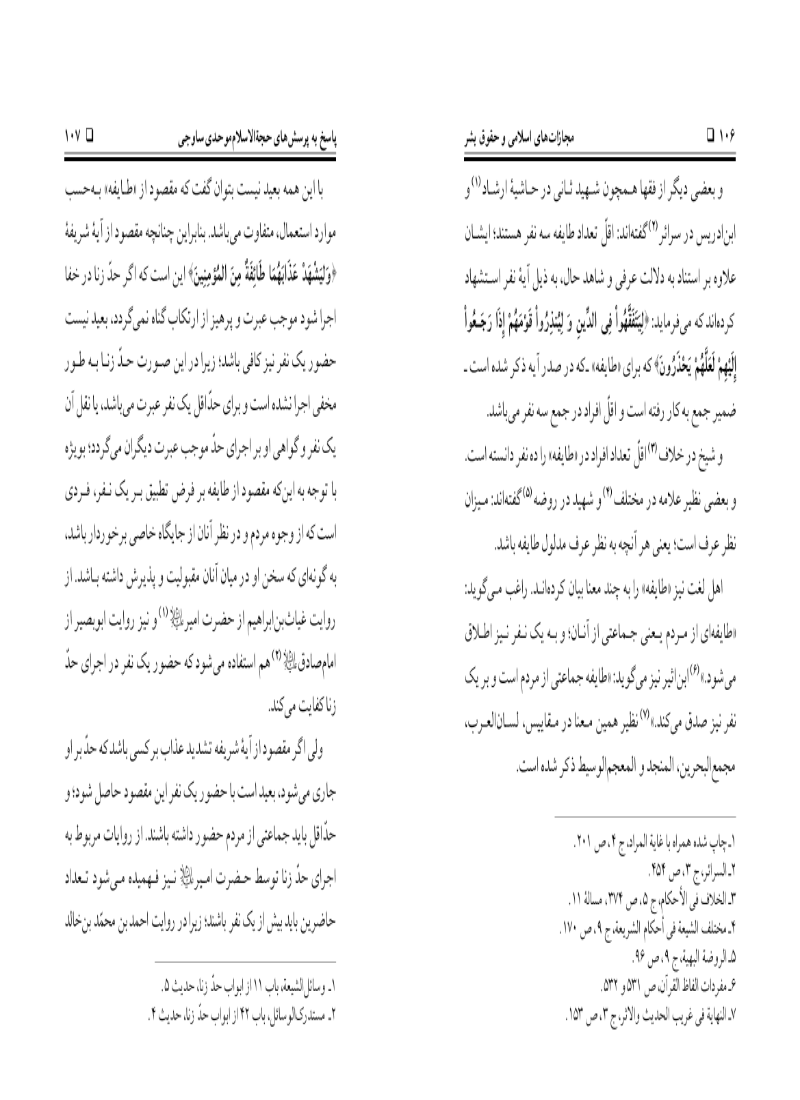 ۱۰۶ ❑ مجازات‌های اسلامی و حقوق بشر
و بعضی دیگر از فقها همچون شهید ثانی در حاشیهٔ ارشاد(۱) و
ابن‌ادریس در سرائر(۲) گفته‌اند: اقلّ تعداد طایفه سه نفر هستند؛ ایشان
علاوه بر استناد به دلالت عرفی و شاهد حال، به ذیل آیهٔ نفر استشهاد
کرده‌اند که می‌فرماید: ﴿لِیَتَفَقَّهُواْ فِی الدِّینِ وَ لِیُنذِرُواْ قَوْمَهُمْ إِذَا رَجَعُواْ
إِلَیْهِمْ لَعَلَّهُمْ یَحْذَرُونَ﴾ که برای «طایفه» ـ که در صدر آیه ذکر شده است ـ
ضمیر جمع به کار رفته است و اقلّ افراد در جمع سه نفر می‌باشد.
و شیخ در خلاف(۳) اقلّ تعداد افراد در «طایفه» را ده نفر دانسته است.
و بعضی نظیر علامه در مختلف(۴) و شهید در روضه(۵) گفته‌اند: میزان
نظر عرف است؛ یعنی هر آنچه به نظر عرف مدلول طایفه باشد.
اهل لغت نیز «طایفه» را به چند معنا بیان کرده‌اند. راغب می‌گوید:
«طایفه‌ای از مردم یعنی جماعتی از آنان؛ و به یک نفر نیز اطلاق
می‌شود.»(۶) ابن‌اثیر نیز می‌گوید: «طایفه جماعتی از مردم است و بر یک
نفر نیز صدق می‌کند.»(۷) نظیر همین معنا در مقاییس، لسان‌العرب،
مجمع‌البحرین، المنجد و المعجم‌الوسیط ذکر شده است.
۱ـ چاپ شده همراه با غایة المراد، ج ۴، ص ۲۰۱.
۲ـ السرائر، ج ۳، ص ۴۵۴.
۳ـ الخلاف فی الأحکام، ج ۵، ص ۳۷۴، مسالهٔ ۱۱.
۴ـ مختلف الشیعة فی أحکام الشریعة، ج ۹، ص ۱۷۰.
۵ـ الروضة البهیة، ج ۹، ص ۹۶.
۶ـ مفردات الفاظ القرآن، ص ۵۳۱ و ۵۳۲.
۷ـ النهایة فی غریب الحدیث والاثر، ج ۳، ص ۱۵۳.
پاسخ به پرسش‌های حجةالاسلام موحدی ساوجی ❑ ۱۰۷
با این همه بعید نیست بتوان گفت که مقصود از «طایفه» به‌حسب
موارد استعمال، متفاوت می‌باشد. بنابراین چنانچه مقصود از آیهٔ شریفهٔ
﴿وَلْیَشْهَدْ عَذَابَهُمَا طَائِفَةٌ مِنَ الْمُؤْمِنِینَ﴾ این است که اگر حدّ زنا در خفا
اجرا شود موجب عبرت و پرهیز از ارتکاب گناه نمی‌گردد، بعید نیست
حضور یک نفر نیز کافی باشد؛ زیرا در این صورت حدّ زنا به طور
مخفی اجرا نشده است و برای حدّاقل یک نفر عبرت می‌باشد، یا نقل آن
یک نفر و گواهی او بر اجرای حدّ موجب عبرت دیگران می‌گردد؛ بویژه
با توجه به این‌که مقصود از طایفه بر فرض تطبیق بر یک نفر، فردی
است که از وجوه مردم و در نظر آنان از جایگاه خاصی برخوردار باشد،
به گونه‌ای که سخن او در میان آنان مقبولیت و پذیرش داشته باشد. از
روایت غیاث‌بن‌ابراهیم از حضرت امیر علیه‌السلام(۱) و نیز روایت ابوبصیر از
امام‌صادق علیه‌السلام(۲) هم استفاده می‌شود که حضور یک نفر در اجرای حدّ
زنا کفایت می‌کند.
ولی اگر مقصود از آیهٔ شریفه تشدید عذاب بر کسی باشد که حدّ بر او
جاری می‌شود، بعید است با حضور یک نفر این مقصود حاصل شود؛ و
حدّاقل باید جماعتی از مردم حضور داشته باشند. از روایات مربوط به
اجرای حدّ زنا توسط حضرت امیر علیه‌السلام نیز فهمیده می‌شود تعداد
حاضرین باید بیش از یک نفر باشند؛ زیرا در روایت احمد بن محمّد بن‌خالد
۱ـ وسائل‌الشیعة، باب ۱۱ از ابواب حدّ زنا، حدیث ۵.
۲ـ مستدرک‌الوسائل، باب ۴۲ از ابواب حدّ زنا، حدیث ۴.